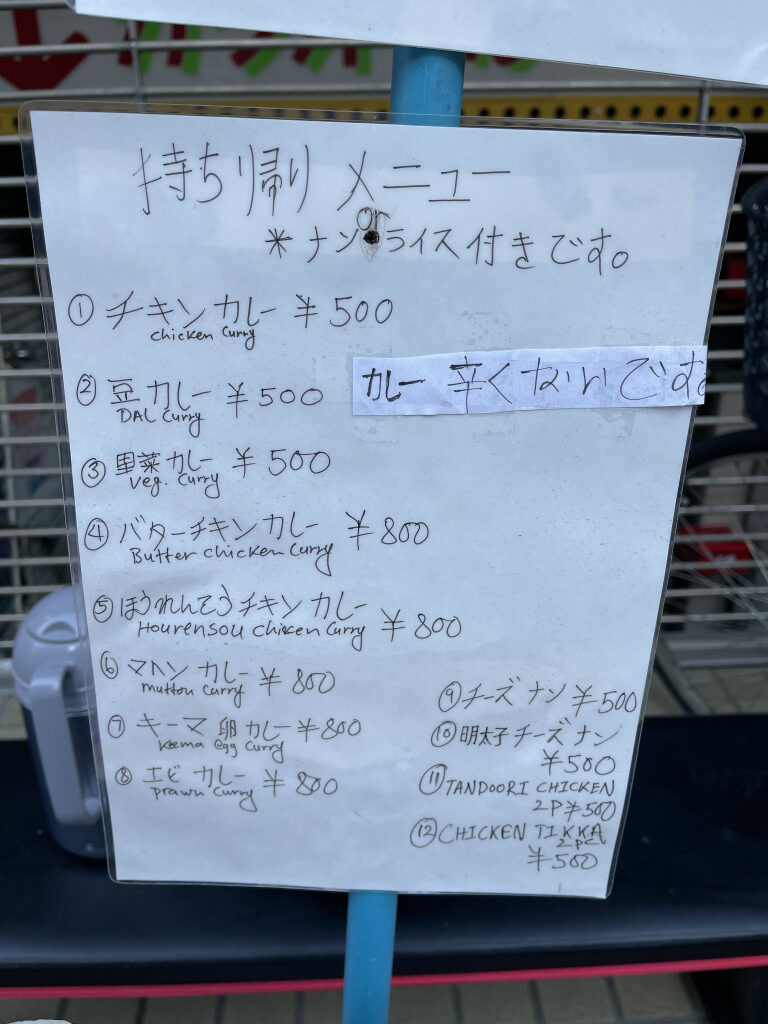 持ち帰り メニュー
or
* ナン ライス付きです。
① チキンカレー ¥500
chicken curry
カレー 辛くないです。
② 豆カレー ¥500
DAL curry
③ 野菜カレー ¥500
Veg. curry
④ バターチキンカレー ¥800
Butter chicken curry
⑤ ほうれんそうチキンカレー
Hourensou chicken curry ¥800
⑥ マトンカレー ¥800
mutton curry
⑦ キーマ卵カレー ¥800
Keema egg curry
⑧ エビカレー ¥800
prawn curry
⑨ チーズナン ¥500
⑩ 明太子チーズナン
¥500
⑪ TANDOORI CHICKEN
2P ¥500
⑫ CHICKEN TIKKA
2pc
¥500